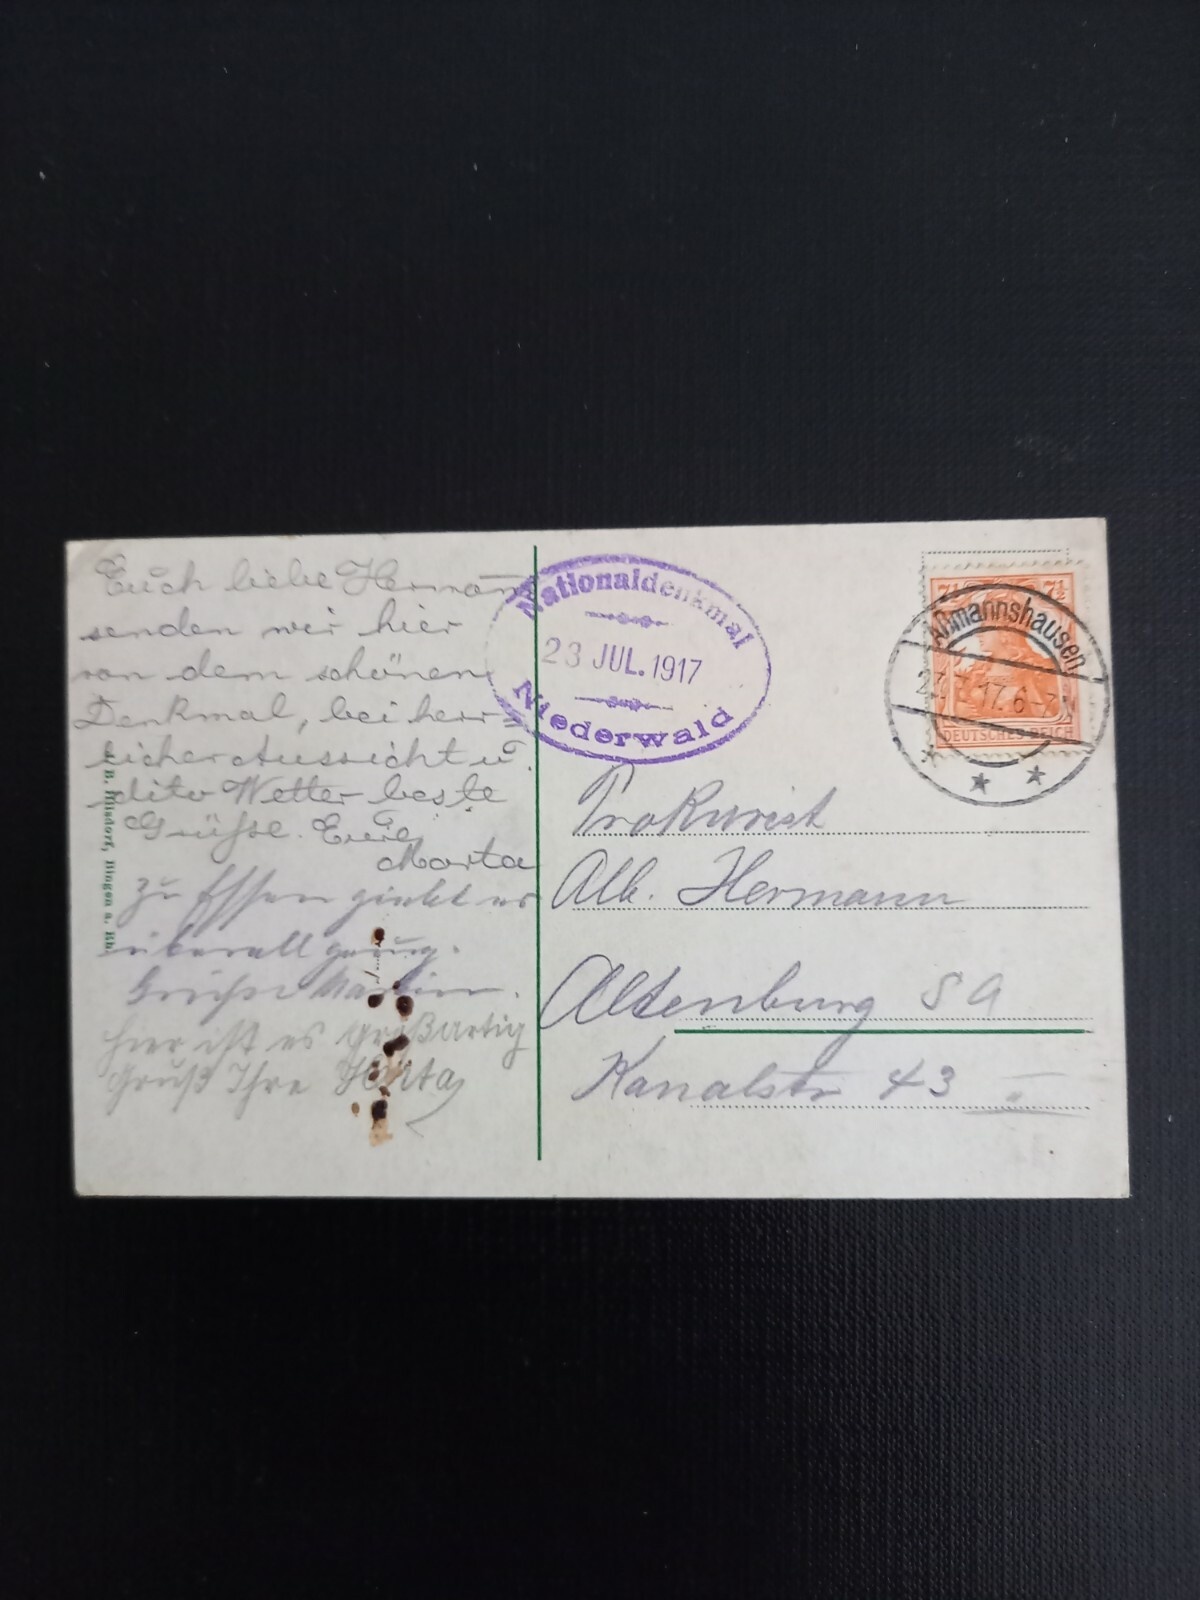 Euch liebe Hermann
senden wir hier
von dem schönen
Denkmal, bei herr=
licher Aussicht u.
dito Wetter beste
Grüsse. Eure
Marta
Zu Essen giebt es
überall genug.
Grüße
hier ist es großartig
Gruß Ihre
Bingen a. Rh.
Nationaldenkmal
23 JUL. 1917
Niederwald
7½ 7½
DEUTSCHES REICH
Aßmannshausen
17. 6-7 N
Prokurist
Alb. Hermann
Altenburg S A
Kanalstr 43 II